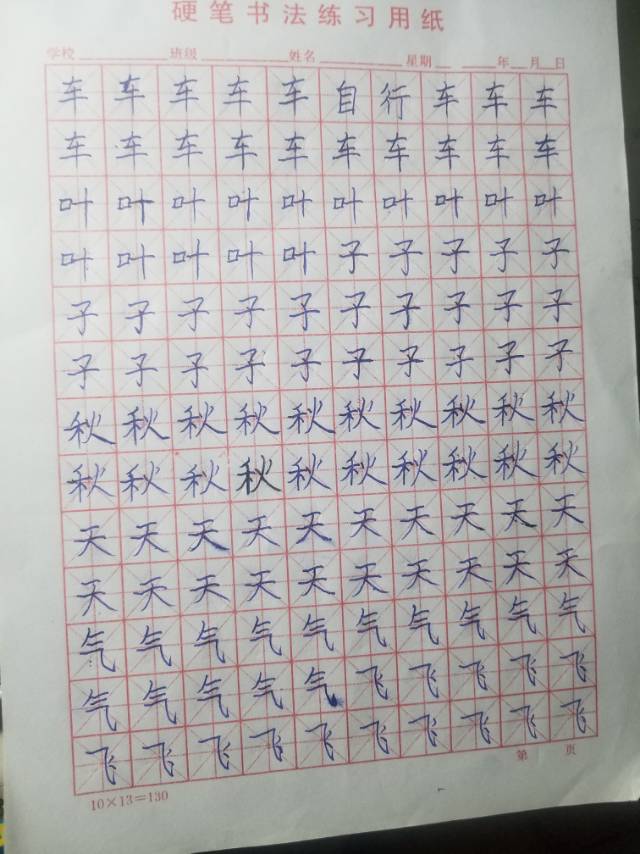 硬笔书法练习用纸
学校 班级 姓名 星期 年 月 日
车车车车车自行车车车
车车车车车车车车车车
叶叶叶叶叶叶叶叶叶叶
叶叶叶叶叶子子子子子
子子子子子子子子子子
子子子子子子子子子子
秋秋秋秋秋秋秋秋秋秋
秋秋秋秋秋秋秋秋秋秋
天天天天天天天天天天
天天天天天天天天天天
气气气气气气气气气气
气气气气气飞飞飞飞飞
飞飞飞飞飞飞飞飞飞飞
10×13=130 第 页